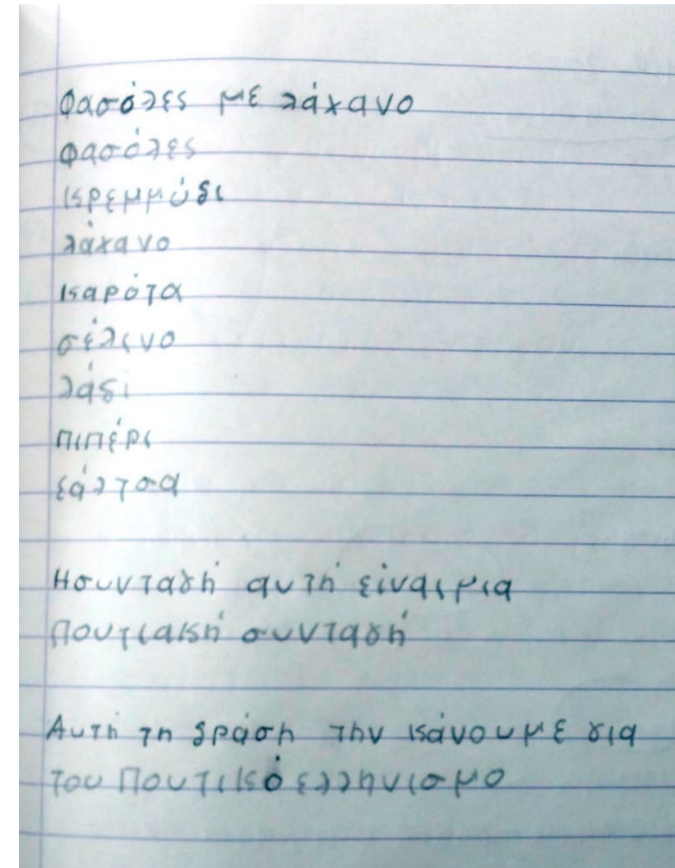 Φασόλες με λάχανο
φασόλες
κρεμμύδι
λάχανο
καρότα
σέλινο
λάδι
πιπέρι
σάλτσα
Η συνταγή αυτή είναι μια
Ποντιακή συνταγή
Αυτή τη δράση την κάνουμε για
τον Ποντικό ελληνισμο